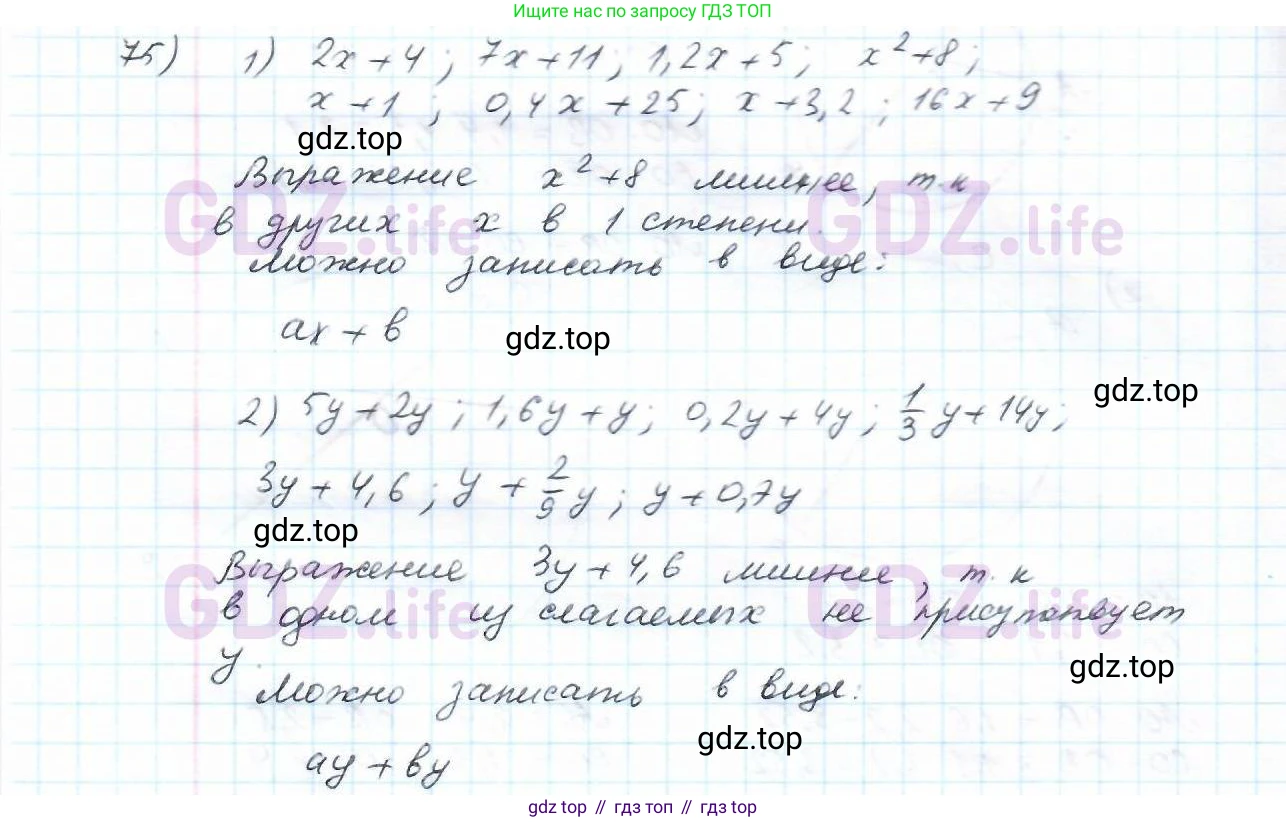 Ищите нас по запросу ГДЗ ТОП
75) 1) 2x+4; 7x+11; 1,2x+5; x²+8;
x+1; 0,4x+25; x+3,2; 16x+9
gdz.top
Выражение x²+8 лишнее, т.к
GDZ.life GDZ.life
в других x в 1 степени.
Можно записать в виде:
ax+в
gdz.top
gdz.top
2) 5y+2y; 1,6y+y; 0,2y+4y; 1/3 y+14y;
3y+4,6; y+2/9 y; y+0,7y
gdz.top
Выражение 3y+4,6 лишнее, т.к
GDZ.life GDZ.life
в одном из слагаемых не присутствует
y.
gdz.top
Можно записать в виде:
gdz.top
ay+вy
gdz топ // гдз топ // гдз top